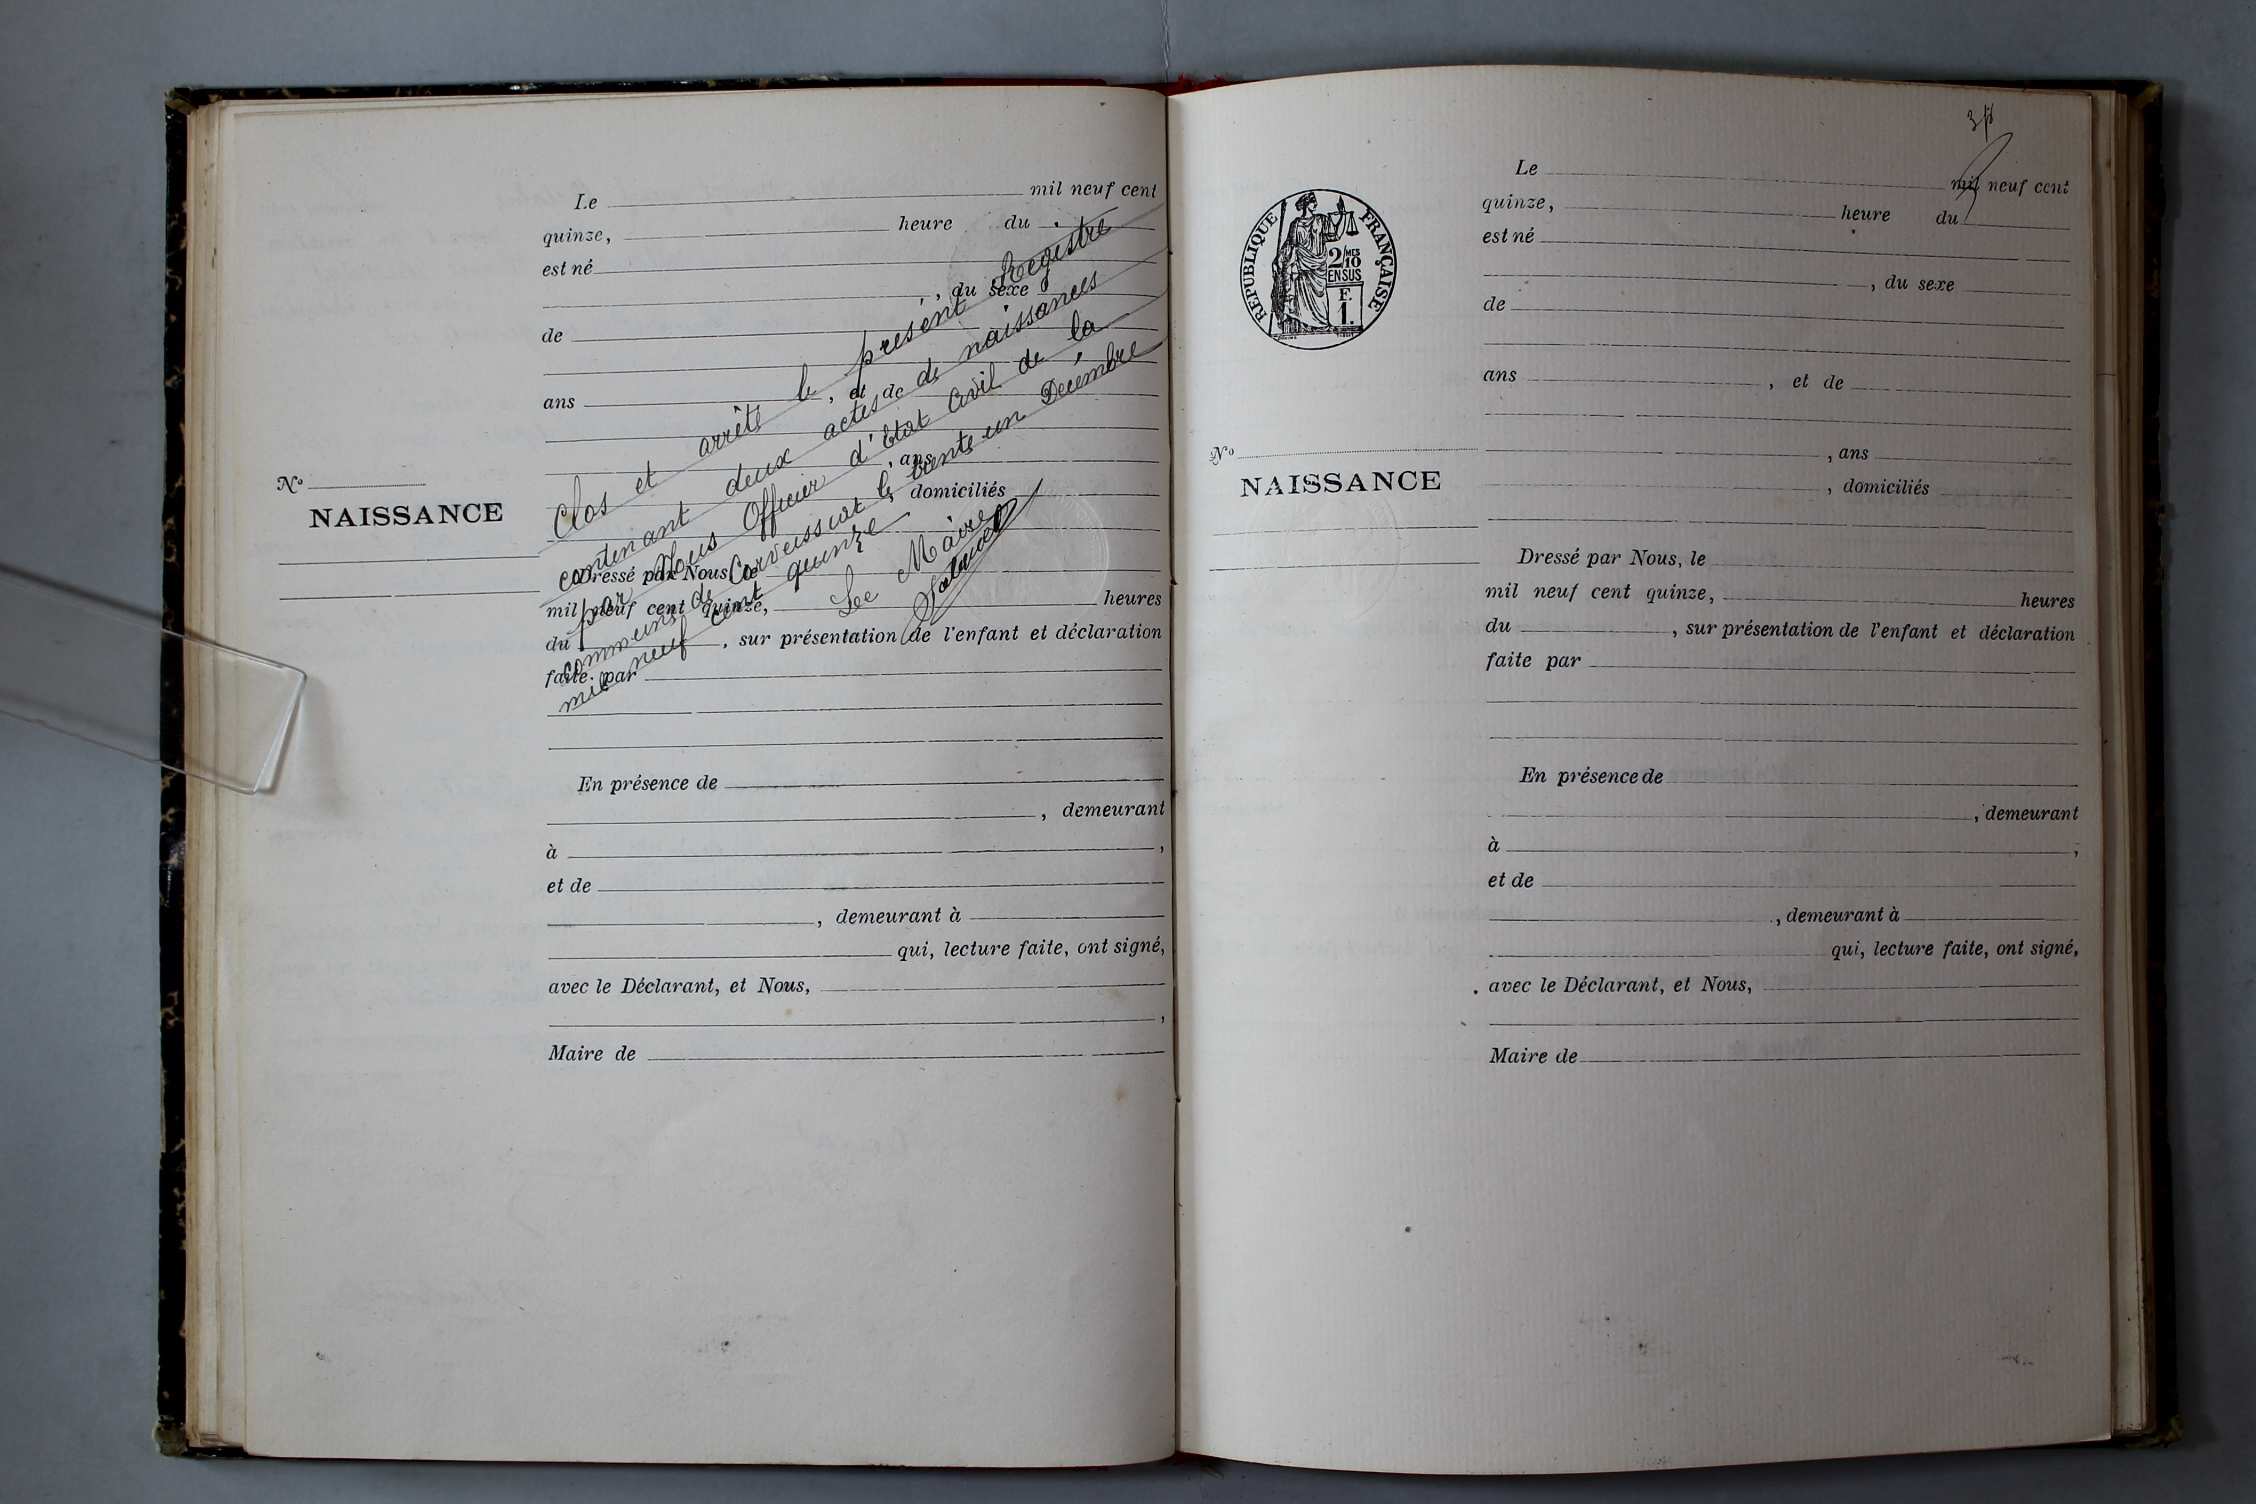 Le mil neuf cent
quinze, heure du
est né
, du sexe
de
ans , et de
, ans
, domiciliés
Nº
NAISSANCE
Dressé par Nous, le
mil neuf cent quinze, heures
du , sur présentation de l'enfant et déclaration
faite par
En présence de
, demeurant
à ,
et de
, demeurant à
qui, lecture faite, ont signé,
avec le Déclarant, et Nous,
,
Maire de
Clos et arrêté le présent Registre
contenant deux actes de naissances
par Nous Officier d'Etat Civil de la
commune de Corveissiat le trente un Décembre
mil neuf cent quinze
Le Maire
Le mil neuf cent
quinze, heure du
est né
, du sexe
de
ans , et de
, ans
, domiciliés
RÉPUBLIQUE FRANÇAISE
2/MES 10
EN SUS
F.
1.
Nº
NAISSANCE
Dressé par Nous, le
mil neuf cent quinze, heures
du , sur présentation de l'enfant et déclaration
faite par
En présence de
, demeurant
à ,
et de
, demeurant à
qui, lecture faite, ont signé,
avec le Déclarant, et Nous,
Maire de